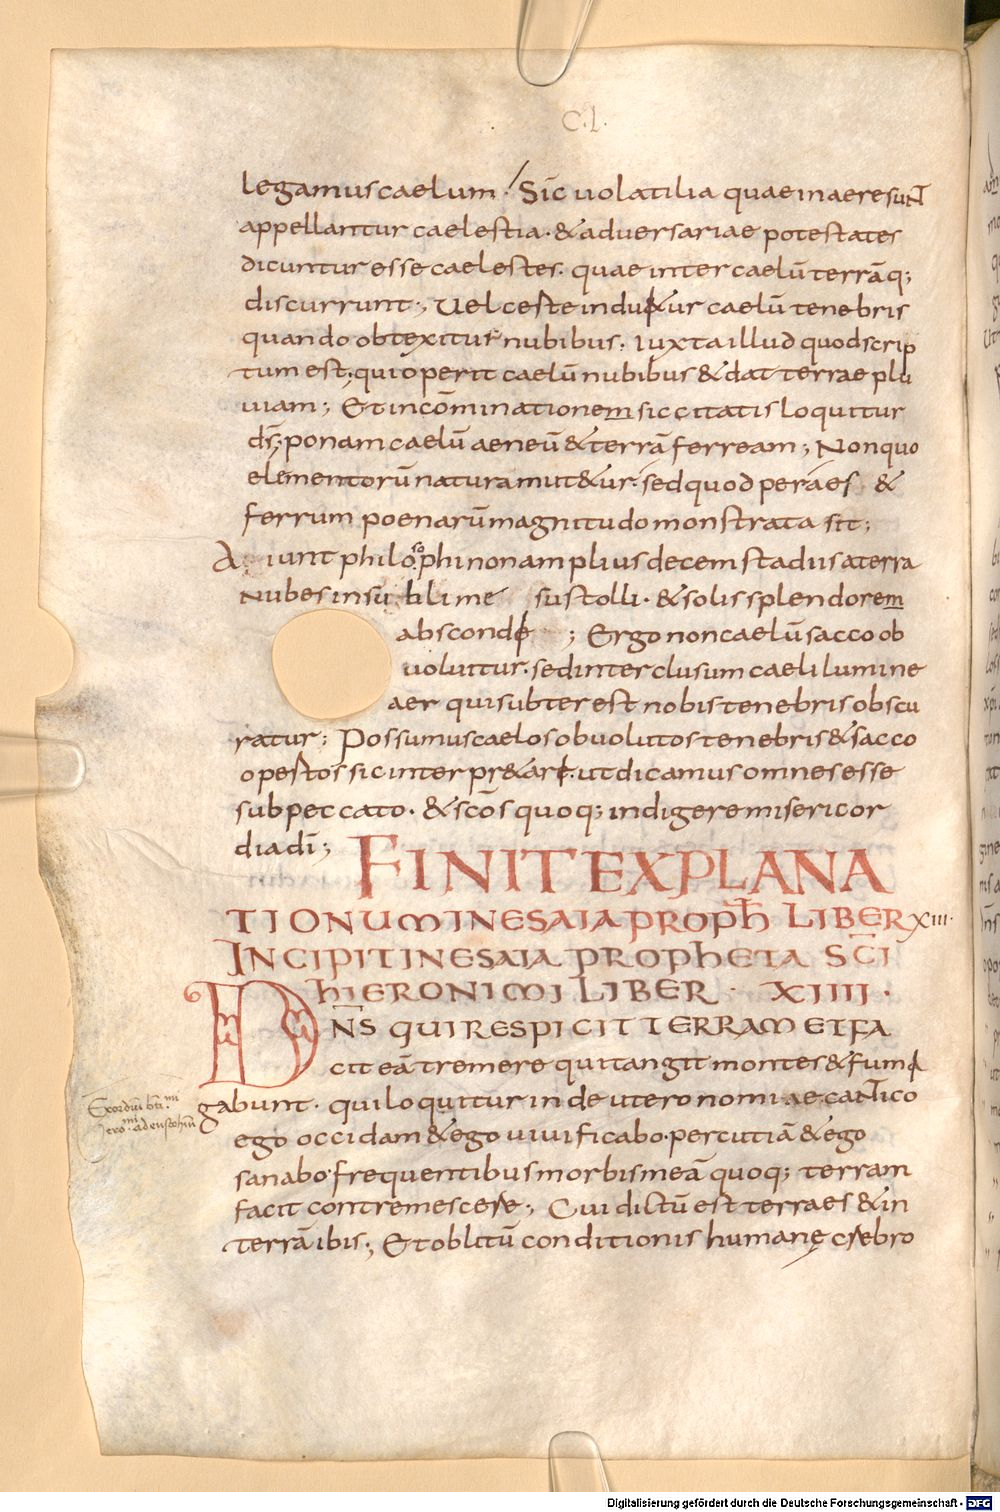 C.L.
legamus caelum. Sic uolatilia quae in aere sunt
appellantur caelestia. & aduersariae potestates
dicuntur esse caelestes. quae inter caelū terrāq;
discurrunt; Uel certe indu&ur caelū tenebris
quando obtexitur nubibus. Iuxta illud quod scrip
tum est; qui operit caelū nubibus & dat terrae plu
uiam; Et in cōminationem siccitatis loquitur
d̄s; ponam caelū aeneū & terrā ferream; Non quo
elementorū natura mut&ur. sed quod per aes &
ferrum poenarū magnitudo monstrata sit;
Aiunt philosophi non amplius decem stadiis a terra
nubes in sublime sustolli. & solis splendorem
abscond; Ergo non caelū sacco ob
uoluitur. sed interclusum caeli lumine
aer qui subter est nobis tenebris obscu
ratur; Possumus caelos obuolutos tenebris & sacco
opertos sic interpr&are. ut dicamus omnes esse
sub peccato. & sc̄os quoq; indigere misericor
dia dī;
FINIT EXPLANA
TIONUM IN ESAIA PROPH LIBER XIII.
INCIPIT IN ESAIA PROPHETA SC̄I
HIERONIMI LIBER. XIIII.
DN̄S QUI RESPICIT TERRAM ET FA
cit eā tremere qui tangit montes & fumi
gabunt. qui loquitur in deuteronomiae cantico
ego occidam & ego uiuificabo. percutiā & ego
sanabo. frequentibus morbis meā quoq; terram
facit contremescere; Cui dictū est terra es & in
terrā ibis; Et oblitū conditionis humanę crebro
Exordiū bti
Digitalisierung gefördert durch die Deutsche Forschungsgemeinschaft - DFG